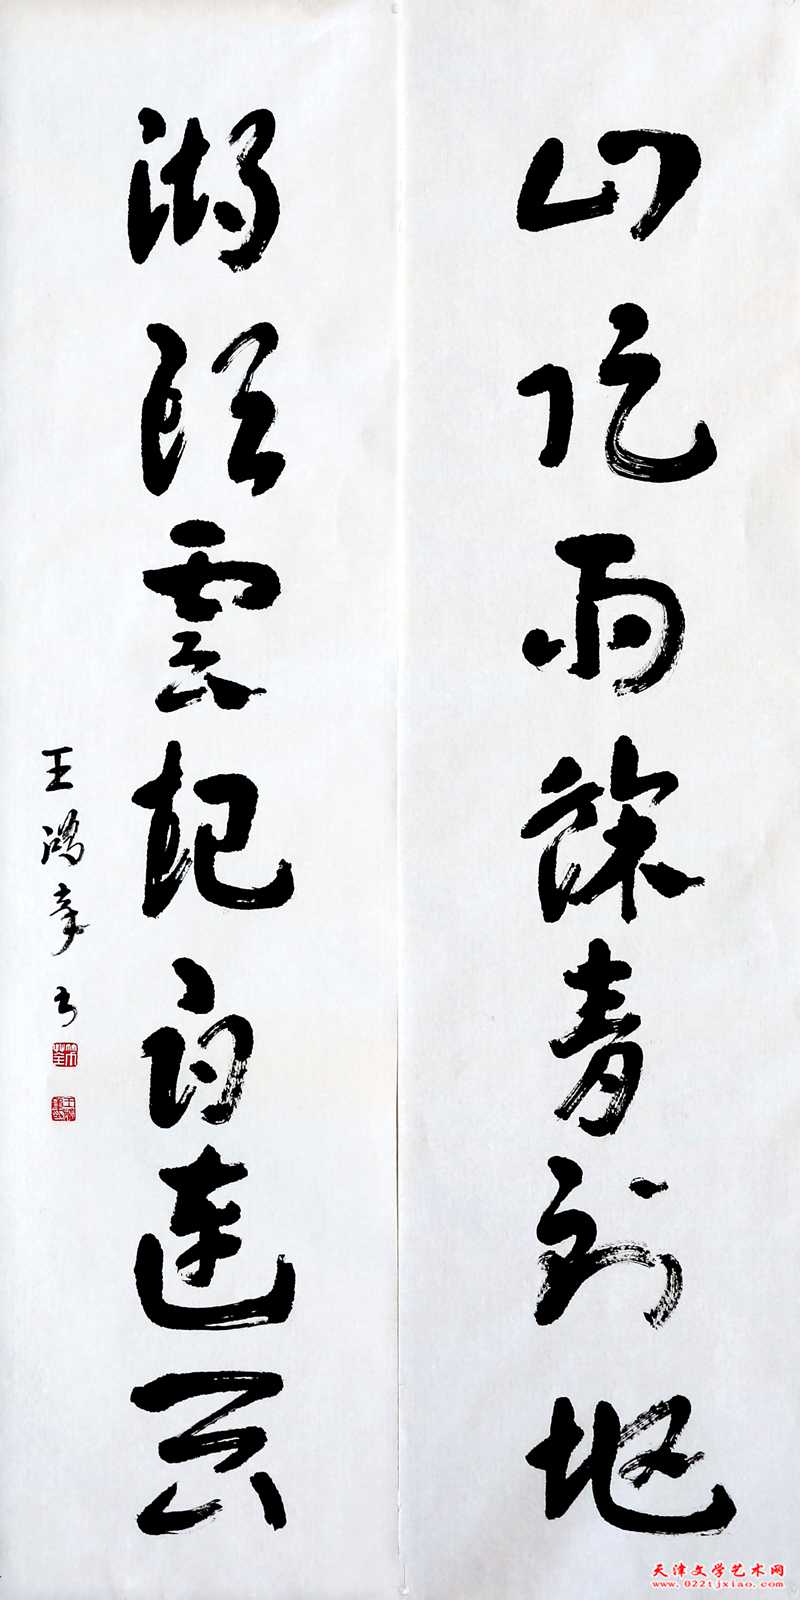 山雨餘青到地
湖頭雲起白連云
王鴻书
天津文学艺术网
www.022tjxiao.com